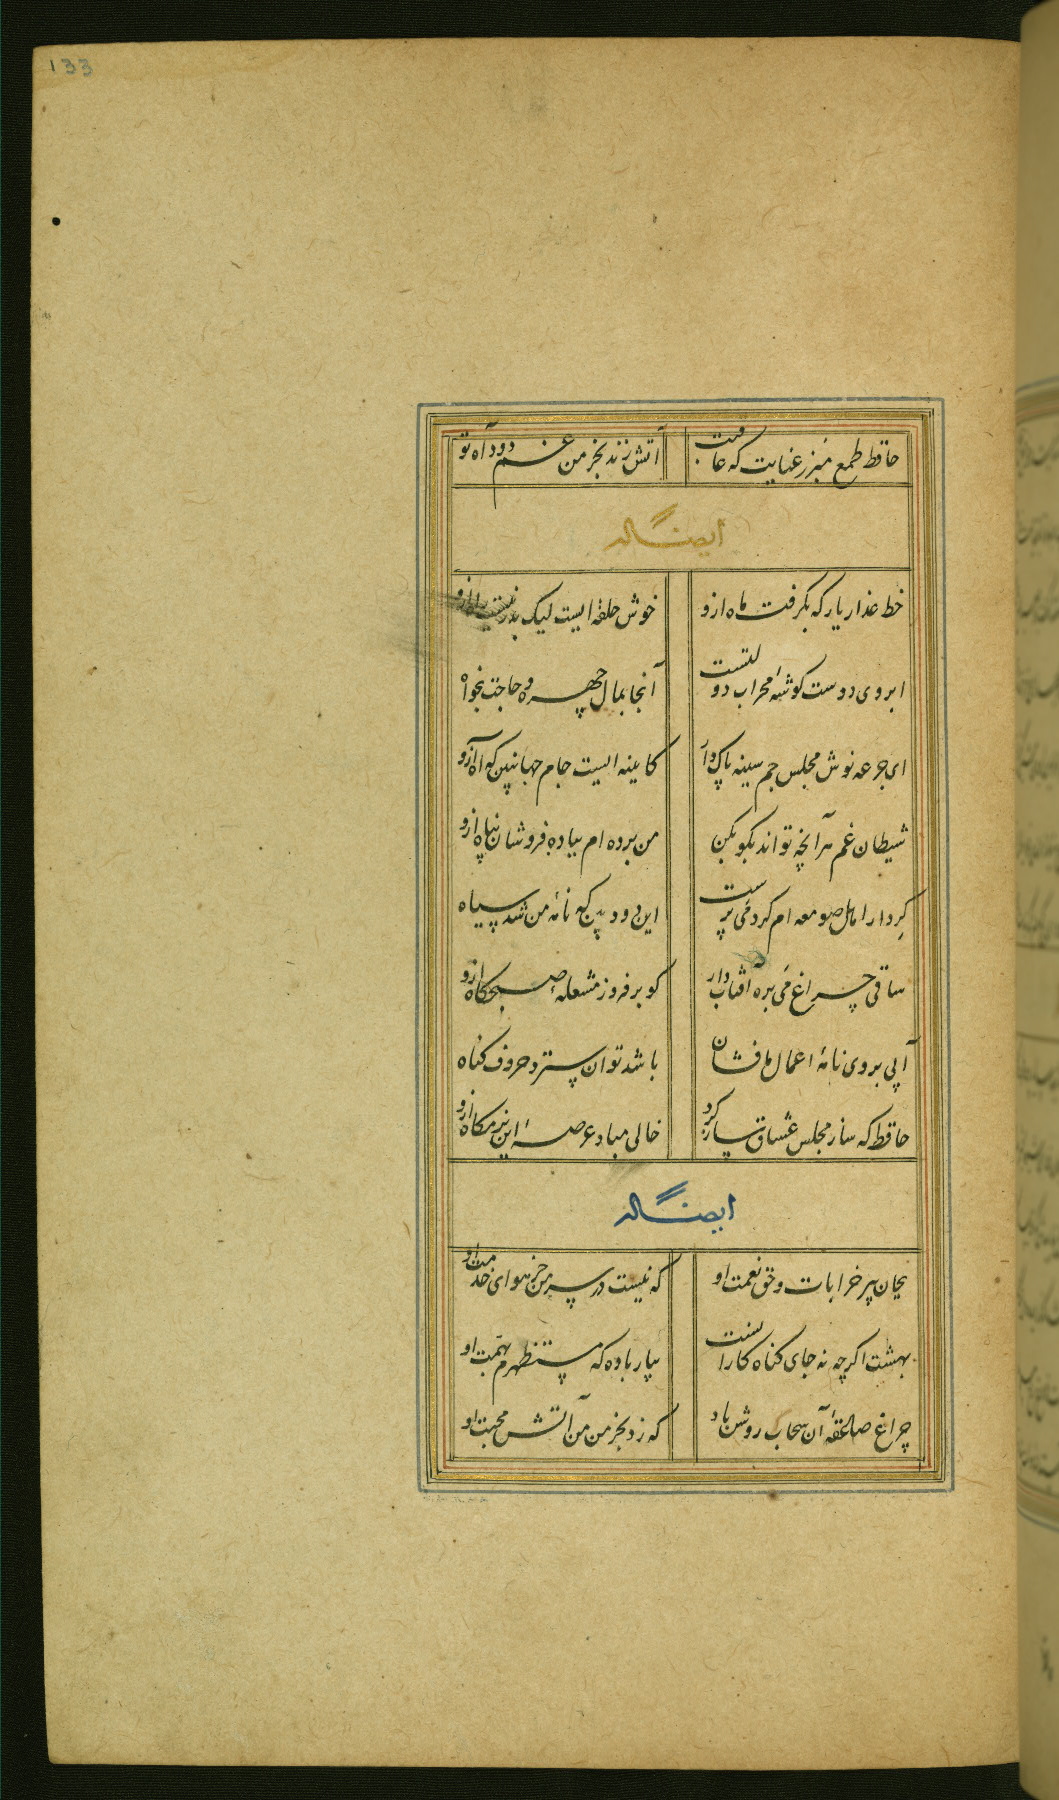 133
حافظ طمع مبر ز عنایت که عاقبت آتش زند بخرمن غم دود آه تو
ایضاً له
خط عذار یار که بگرفت ماه ازو خوش حلقهٔ ایست لیک بدر نیست راه ازو
ابروی دوست کوشهٔ محراب دولتست آنجا بمال چهره و حاجت بخواه
ای جرعه نوش مجلس جم سینه پاک دار کاینه ایست جام جهان‌بین که آه ازو
شیطان غم هر آنچه تواند بکو بکن من برده ام بباده فروشان پناه ازو
کردار اهل صومعه ام کرد می پرست این دود بین که نامهٔ من شد سیاه
ساقی چراغ می بره آفتاب دار کو بر فروز مشعلهٔ صبحکاه ازو
آبی بروی نامهٔ اعمال ما فشان باشد توان سترد حروف کناه
حافظ که ساز مجلس عشاق ساز کرد خالی مباد عرصهٔ این بزمکاه ازو
ایضاً له
بجان پیر خرابات و حق نعمت او که نیست در سر من جز هوای خدمت او
بهشت اکرچه نه جای کناه کارانست بیار باده که مستظهرم بهمت او
چراغ صاعقهٔ آن سحاب روشن باد که زد بخرمن من آتش محبت او